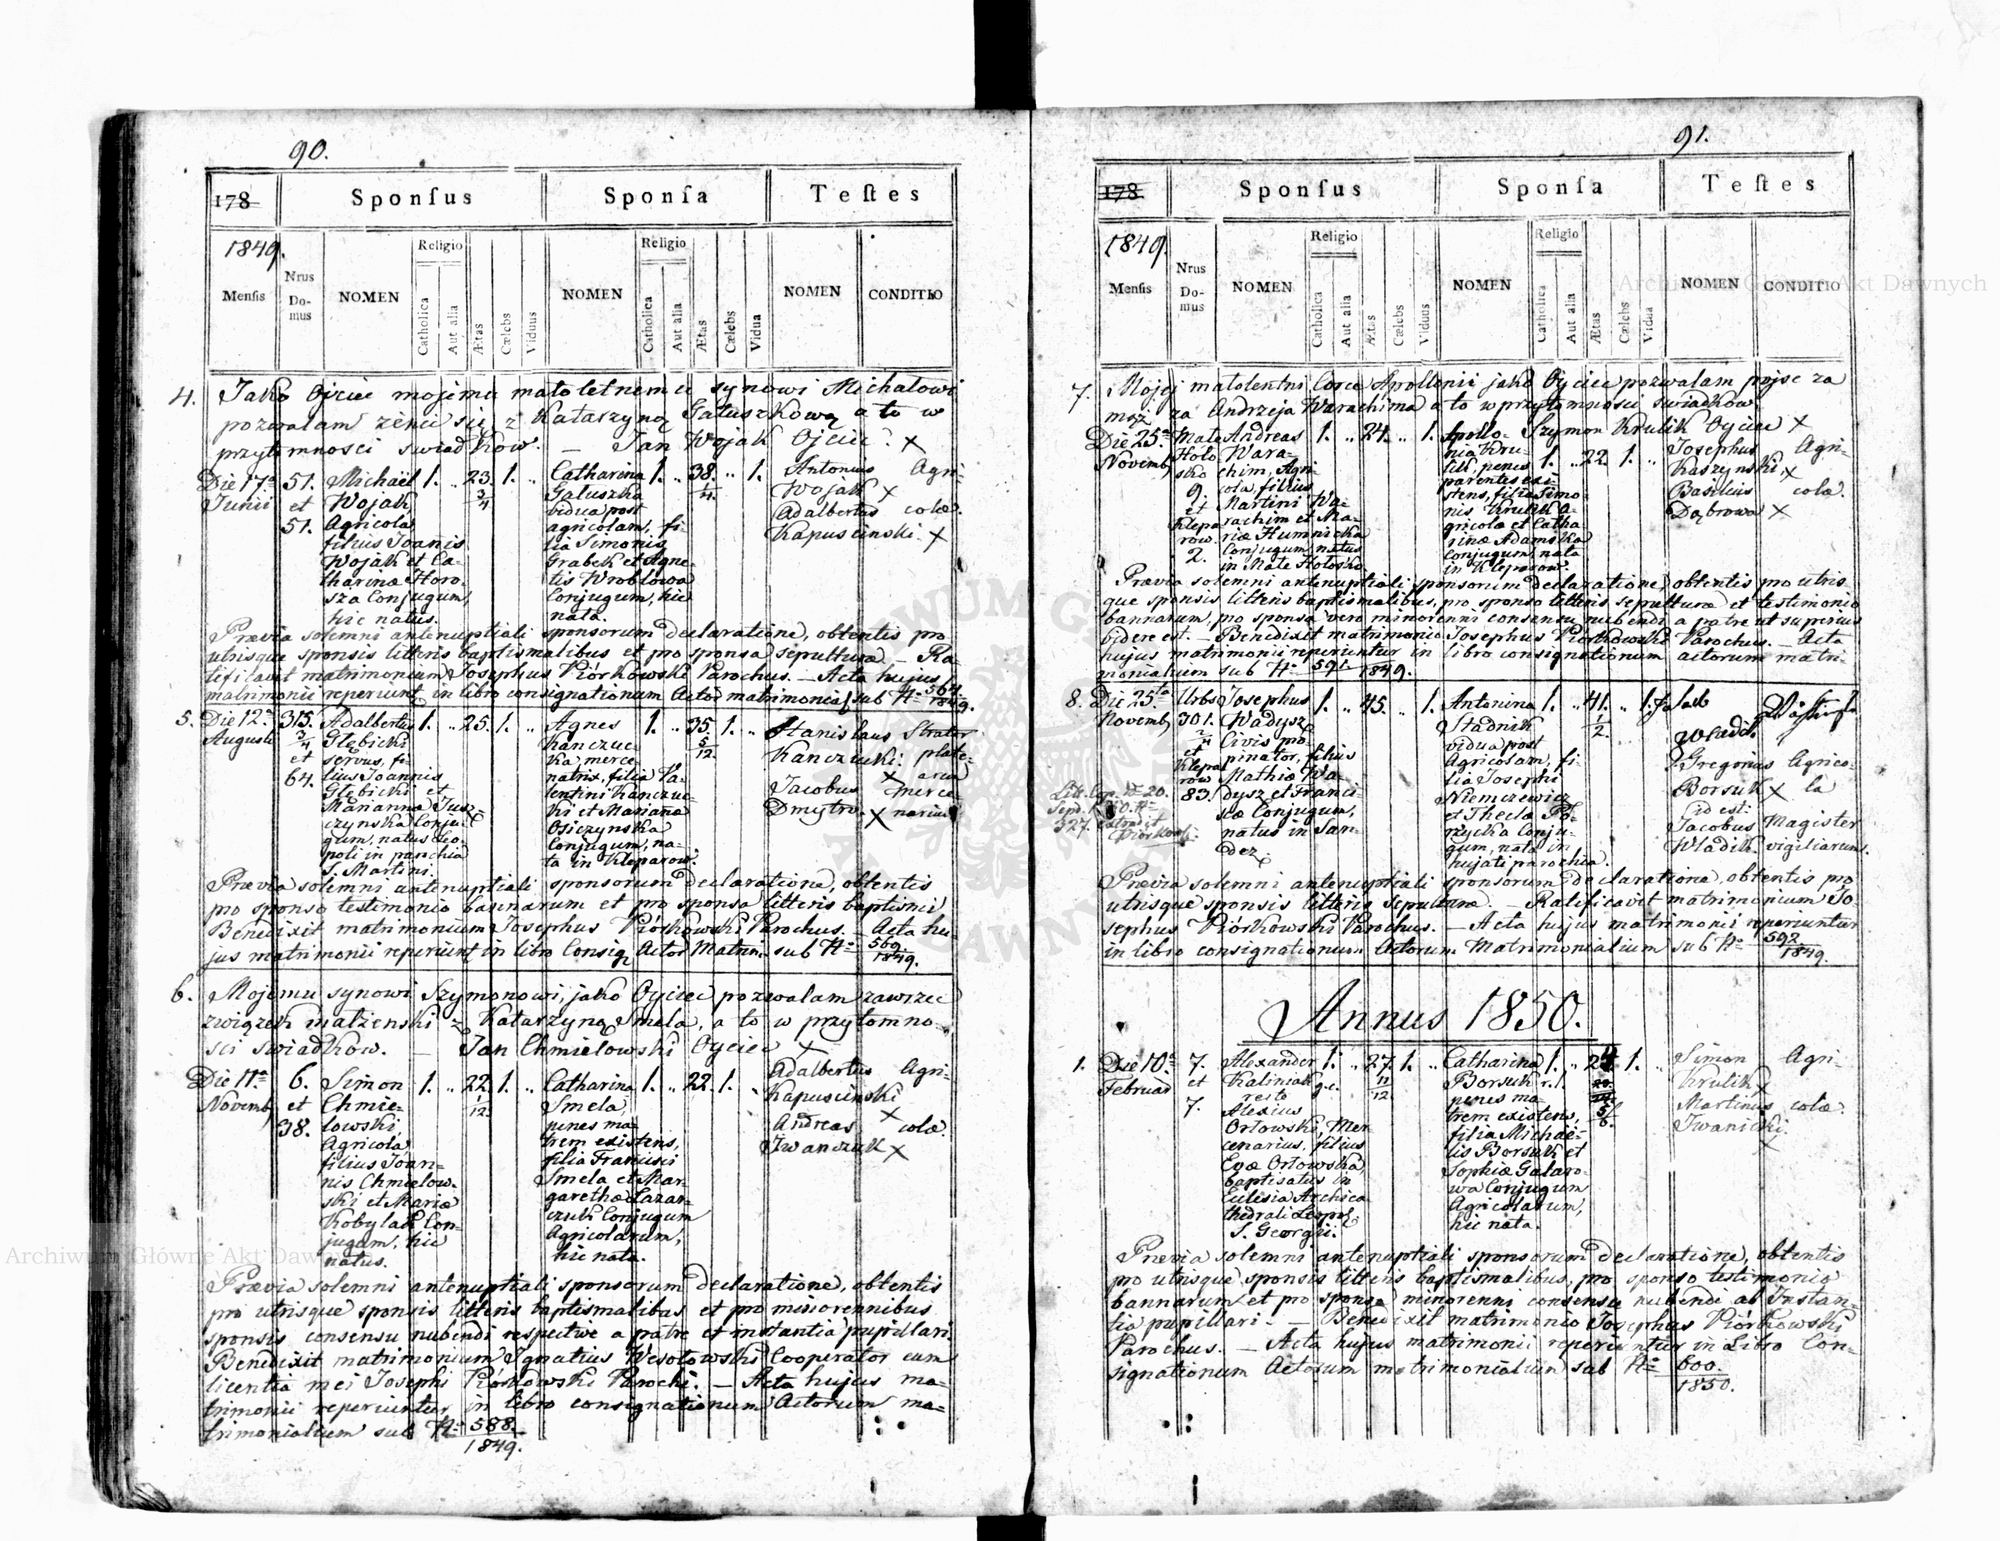 90.
178
Sponſus
Sponſa
Teſtes
1849.
Menſis
Nrus Domus
NOMEN
Religio
Catholica
Aut alia
Ætas
Cœlebs
Viduus
NOMEN
Religio
Catholica
Aut alia
Ætas
Cœlebs
Vidua
NOMEN
CONDITIO
4. Jako Ojciec mojemu małoletnemu synowi Michałowi
pozwalam żenić się z Katarzyną Gałuszkową a to w
przytomności swiadków. — Jan Wojak Ojciec. X
Die 17ª Junii
51. et 51.
Michaël
Wojak
Agricola
filius Joanis
Wojak et Ca-
tharinæ Horo-
sza Conjugum,
hic natus.
1. „ 23 3/4 1. „
Catharina
Gałuszka
vidua post
agricolam, fi-
lia Simonis
Grabek et Agne-
tis Wroblowa
Conjugum, hic
nata.
1. „ 38. 1/4. „ 1.
Antonius
Wojak X
Adalbertus
Kapuscinski X
Agri-
colæ.
Prævia solemni antenuptiali sponsorum declaratione, obtentis pro
utrisque sponsis litteris baptismalibus et pro sponsa sepulturæ. — Ra-
tificavit matrimonium Josephus Piórkowski Parochus. — Acta hujus
matrimonii reperiunt. in libro consignationum Actor matrimonial. sub No 564. 1849.
5. Die 12ª Augusti
315. 3/4 et 64.
Adalbertus
Głębicki
servus, fi-
lius Joannis
Głębicki et
Mariannæ Jusz-
czynska Conju-
gum, natus Leo-
poli in parochia
S. Martini.
1. „ 25. 1. „
Agnes
Kanczuc-
ka merce-
natrix, filia Va-
lentini Kanczuc-
ki et Mariañæ
Osiczynska
Conjugum, na-
ta in Kleparow.
1. „ 35. 5/12. 1. „
Stanislaus
Kanczucki. X
Jacobus
Dmytro. X
Strator
plate-
arum
merce-
narius
Prævia solemni antenuptiali sponsorum declaratione, obtentis
pro sponso testimonio bannorum et pro sponsa litteris baptismi
Benedixit matrimonium Josephus Piórkowski Parochus. — Acta hu-
jus matrimonii reperiunt in libro Consig Actor Matrim sub No 569. 1849.
6. Mojemu synowi Szymonowi, jako Oyciec pozwalam zawrzec
związek małzenski z Katarzyną Smela, a to w przytomno-
sci swiadkow. — Jan Chmielowski Oyciec X
Die 11ª Novemb
6. et 38.
Simon
Chmie-
lowski
Agricola
filius Joan-
nis Chmielow-
ski et Mariæ
Kobylak Con-
jugum, hic
natus.
1. „ 22 1/12. 1. „
Catharina
Smela,
penes ma-
trem existens,
filia Francisci
Smela et Mar-
garethæ Lazar-
czuk Conjugum
Agricolarum,
hic nata.
1. „ 22. 1. „
Adalbertus
Kapuscinski
X
Andreas
Iwanczuk X
Agri-
colæ.
Prævia solemni antenuptiali sponsorum declaratione, obtentis
pro utrisque sponsis litteris baptismalibus et pro minorennibus
sponsis consensu nubendi respective a patre et instantia pupillari.
Benedixit matrimonium Ignatius Wesołowski Cooperator cum
licentia mei Josephi Piórkowski Parochi. — Acta hujus ma-
trimonii reperiuntur in libro consignationum Actorum ma-
trimonialium sub No 588. 1849.
91.
178
Sponſus
Sponſa
Teſtes
1849.
Menſis
Nrus Domus
NOMEN
Religio
Catholica
Aut alia
Ætas
Cœlebs
Viduus
NOMEN
Religio
Catholica
Aut alia
Ætas
Cœlebs
Vidua
NOMEN
CONDITIO
7. Mojej małolentni Corce Apollonii jako Oyciec pozwalam pojsc za
mąż za Andrzeja Warachima a to w przytomnosci swiadkow.
Szymon Krulik Oyciec X
Die 25ª Novemb
Mało Hołosko 9. et Kleparow. 2.
Andreas
Wara-
chim, Agri-
cola, filius
Martini Wa-
rachim et Ma-
riæ Humnicka
Conjugum, natus
in Małe Hołosko.
1. „ 24. „ 1.
Apollo-
nia Kru-
lik, penes
parentes exi-
stens, filia Simo-
nis Krulik a-
gricolæ et Catha-
rinæ Adamska
Conjugum, nata
in Kleparow.
1. „ 22. 1. „
Josephus
Kaszynski X
Basilius
Dąbrowa X
Agri-
colæ.
Prævia solemni antenuptiali sponsorum declaratione, obtentis pro utris-
que sponsis litteris baptismalibus, pro sponso litteris sepulturæ et testimonio
bannorum, pro sponsa vero minorenni consensu nubendi a patre ut superius
videre est. — Benedixit matrimonio Josephus Piórkowski Parochus. — Acta
hujus matrimonii reperiuntur in libro consignationum actorum matri-
monialium sub No 591 1849.
8. Die 25ª Novemb
Urbs 301. 2/4 et Kleparow 83.
Josephus
Wadysz
Civis pro-
pinator, filius
Mathiæ Wa-
dysz et Franci-
scæ Conjugum,
natus in Jan-
dez.
1. „ 45. „ 1.
Antonina
Stadnik
vidua post
Agricolam, fi-
lia Josephi
Niemczewicz
et Theclæ Po-
rzycka Conju-
gum, nata in
hujati parochia.
1. „ 41. 1/2. „ 1.
Gregorius
Borsuk X
id est:
Jacobus
Wladik.
Agrico-
la
Magister
vigiliarum.
Prævia solemni antenuptiali sponsorum declaratione, obtentis pro
utrisque sponsis litteris sepulturæ. — Ratificavit matrimonium Jo-
sephus Piórkowski Parochus. — Acta hujus matrimonii reperiuntur
in libro consignationum Actorum Matrimonialium sub No 592 1849.
Annus 1850.
1. Die 10ª Februar
7. et 7.
Alexander
Kaliniak
recte
Alexius
Orłowski, Mer-
cenarius, filius
Evæ Orłowska,
baptisatus in
Eclesia Archica-
thedrali Leopol.
S. Georgii.
1. g.c. „ 27. 11/12. 1. „
Catharina
Borsuk r.l.
penes ma-
trem existens,
filia Michaë-
lis Borsuk et
Sophiæ Gałaro-
wa Conjugum
Agricolarum,
hic nata.
1. „ 24 5/6. 1. „
Simon
Krulik X
Martinus
Iwanicki
X
Agri-
colæ.
Prævia solemni antenuptiali sponsorum declaratione, obtentis
pro utrisque sponsis litteris baptismalibus, pro sponso testimonio
bannorum et pro sponsa minorenni consensu nubendi ab Instan-
tia pupillari. — Benedixit matrimonio Josephus Piórkowski
Parochus. — Acta hujus matrimonii reperiuntur in Libro Con-
signationum Actorum matrimonialium sub No 600. 1850.
Archiwum Główne Akt Dawnych
Archiwum Główne Akt Dawnych